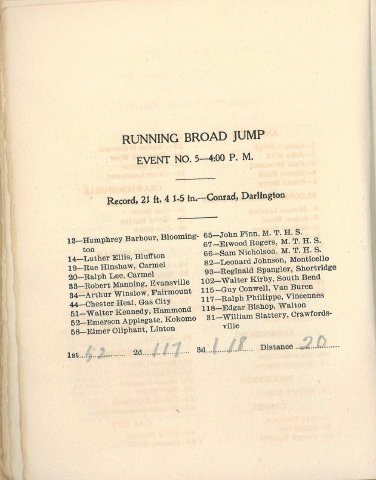 RUNNING BROAD JUMP
EVENT NO. 5—4:00 P. M.
Record, 21 ft. 4 1-5 in.—Conrad, Darlington
13—Humphrey Barbour, Blooming-
ton
14—Luther Ellis, Bluffton
19—Rue Hinshaw, Carmel
20—Ralph Lee, Carmel
33—Robert Manning, Evansville
34—Arthur Winslow, Fairmount
44—Chester Heal, Gas City
51—Walter Kennedy, Hammond
52—Emerson Applegate, Kokomo
58—Elmer Oliphant, Linton
65—John Finn, M. T. H. S.
67—Elwood Rogers, M. T. H. S.
66—Sam Nicholson, M. T. H. S.
82—Leonard Johnson, Monticello
93—Reginald Spangler, Shortridge
102—Walter Kirby, South Bend
115—Guy Conwell, Van Buren
117—Ralph Phillippo, Vincennes
118—Edgar Bishop, Walton
31—William Slattery, Crawfords-
ville
1st 52 2d 117 3d 118 Distance 20